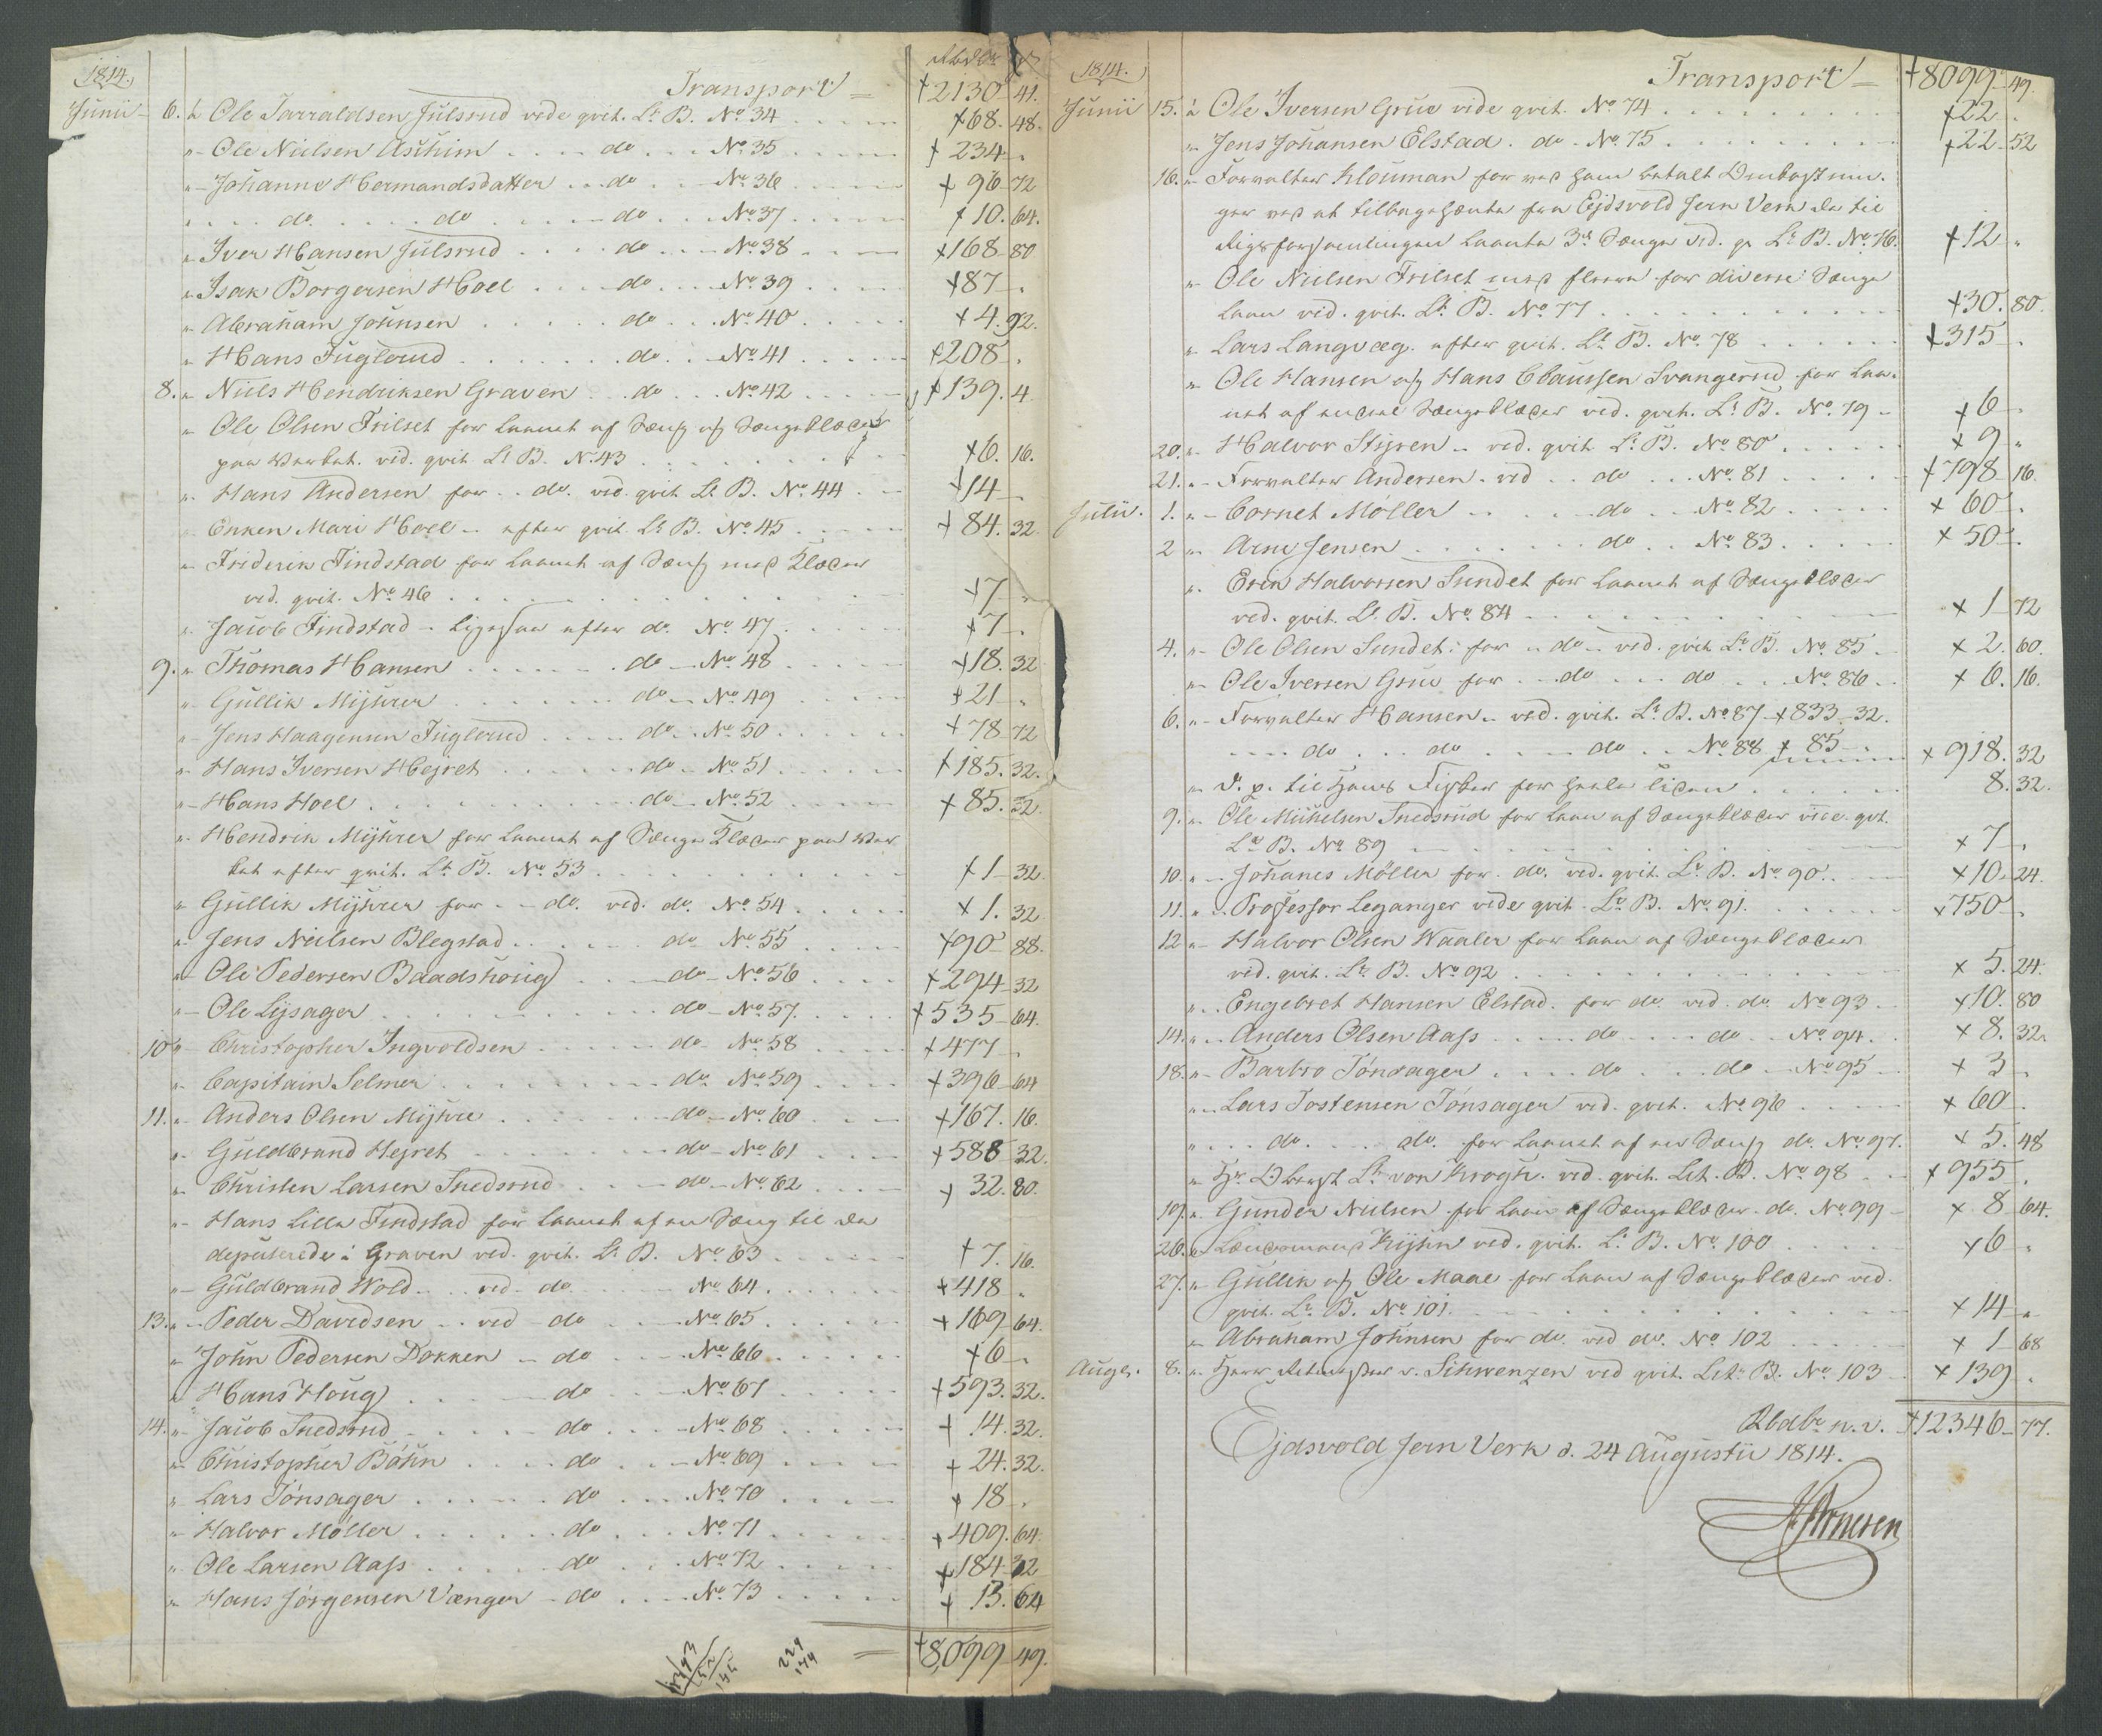 Rbdlr ß
1814.
Transport = 2130 41.
Junii 6. " Ole Tarraldsen Julsrud vide qvit. Lt. B. No. 34 68. 48.
" Ole Nielsen Aschim do No. 35 234 .
" Johanne Hermandsdatter do No. 36 96 72
" do. do do No. 37 10. 64.
" Iver Hansen Julsrud do No. 38 168 80
" Isak Borgersen Hoel do No. 39 87 .
" Abraham Johnsen do No. 40 4. 92.
" Hans Fuglerud do No. 41 208 .
8. " Niels Hendriksen Graven do No. 42 139. 4
" Ole Olsen Frilset for Laanet af Seng og Sengeklæder
paa Værket. vid. qvit. Lt B. No. 43 6. 16.
" Hans Andersen for do. vid. qvit. Lt. B. No. 44 14 .
" Enken Mari Hoel efter qvit. Lt B. No. 45 84. 32.
" Friderik Findstad for Laanet af Seng med Klæder
vid. qvit. No. 46 7 .
" Jacob Findstad ligesaa efter do. No. 47 7 .
9. " Thomas Hansen do No. 48 18. 32
" Gullik Mÿhrer do No. 49 21 .
" Jens Haagensen Fuglerud do No. 50 78 72
" Hans Iversen Hejret do No. 51 185. 32.
" Hans Hoel do No. 52 85. 32.
" Hendrik Mÿhrer for Laanet af Senge Klæder paa Vær
ket efter qvit. Lt B. No. 53 1 32.
" Gullik Mÿhrer for do. vid. do. No. 54 1. 32
" Jens Nielsen Blegstad do No. 55 90 88.
" Ole Pedersen Baadshoug do No. 56 294 32
" Ole Lÿsager do No. 57. 535 64.
10. " Christopher Ingvoldsen do No. 58 477 .
" Capitain Selmer do No. 59 396 64
11. " Anders Olsen Mÿhre do No. 60 167. 16.
" Guldbrand Hejret do No. 61 588 32.
" Christen Larsen Snedsrud do No. 62 32. 80.
" Hans Lille Findstad for Laanet af en Seng til de
deputerede i Graven ved. qvit. Lt. B. No. 63 7. 16.
" Guldbrand Wold ved do No. 64 418 .
13. " Peder Davidsen ved do No. 65 169 64.
" John Pedersen Dokken do No. 66 6 .
" Hans Houg do No. 67 593. 32.
14. " Jacob Snedsrud do No. 68 14. 32.
" Christopher Bøhn do No. 69 24. 32.
" Lars Tönsager do No. 70 18 .
" Halvor Møller do No. 71 409. 64.
" Ole Larsen Aass do No. 72 184 32
" Hans Jørgensen Vænger do No. 73 13. 64
= 8099 49.
1814.
Transport = 8099 49.
Junii 15. " Ole Iversen Grue vide qvit. No. 74 22 .
" Jens Johansen Elstad. do No. 75 22 52
16. " Forvalter Klouman for ved ham betalt Omkostnin-
ger ved at tilbagehænte fra Ejdsvold Jern Verk de til
Rigsforsamlingen laante 3de Senge vid. qv Lt B. No. 76. 12 .
" Ole Nielsen Frilset med fleere for diverse Senge
Laan vid. qvit. Lt. B. No. 77 30. 80.
" Lars Langvæg. efter qvit. Lt B. No. 78 315 .
" Ole Hansen og Hans Claussen Svangerud for Laa-
net af endeel Sengeklæder ved. qvit. Lt B. No. 79 6 .
20. " Halvor Stÿren ved. qvit Lt B. No. 80 9 "
21. " Forvalter Andersen. ved do No. 81 798 16.
Julii. 1. " Cornet Møller do No. 82 60 .
2 " Arne Jensen do No. 83. 50 .
" Erik Halvorsen Sundet for Laanet af Sengeklæder
ved. qvit. Lt. B. No. 84 1 72
4. " Ole Olsen Sundet for do ved. qvit Lt B. No. 85. 2. 60.
" Ole Iversen Grue for do do No. 86 6. 16.
6. " Forvalter Hansen ved. qvit. Lt B. No. 87 833 32.
do do do No. 88 85 . 918. 32
" til Hans Fisker for 8. 32.
9. " Ole Michelsen Snedsrud for Laan af Sengeklæder vide qvt.
Lt B. No. 89 7 .
10. " Johanes Møller for do. ved. qvit. Lt B. No. 90. 10. 24.
11. " Professor Leganger vide qvit. Lt B. No. 91. 750 .
12 " Halvor Olsen Waaler for Laan af Sengeklæder
ved. qvit. Lt. B. No. 92 5. 24.
" Engebret Hansen Elstad. for do. ved. do. No. 93 10. 80
14. " Anders Olsen Aass do do No. 94. 8. 32.
18. " Barbro Tönsager do do No. 95 3 .
" Lars Tostensen Tönsager ved. qvit. No. 96 60 .
" do. do. for Laanet af en Seng do. No. 97. 5. 48
" Hr Oberst Lt. von Krogh. ved. qvit. Lit. B. No. 98 955 .
19. " Gunder Nielsen for Laan af Sengeklæder. do. No. 99 8 64.
26. " Lænsmand Kÿhn ved. qvit. Lt B. No. 100 6 .
27. " Gullik og Ole Maae for Laan af Sengeklæder ved.
qvit. Lt B. No. 101. 14 "
" Abraham Johnsen for do ved do. No. 102 1 68
Augs. 8. " Herr Ritmester v. Schwenzen ved qvit. Litr. B. No. 103 139 .
Rbdlr. n. v. 12346 77.
Ejdsvold Jern Verk d. 24 Augustii 1814.